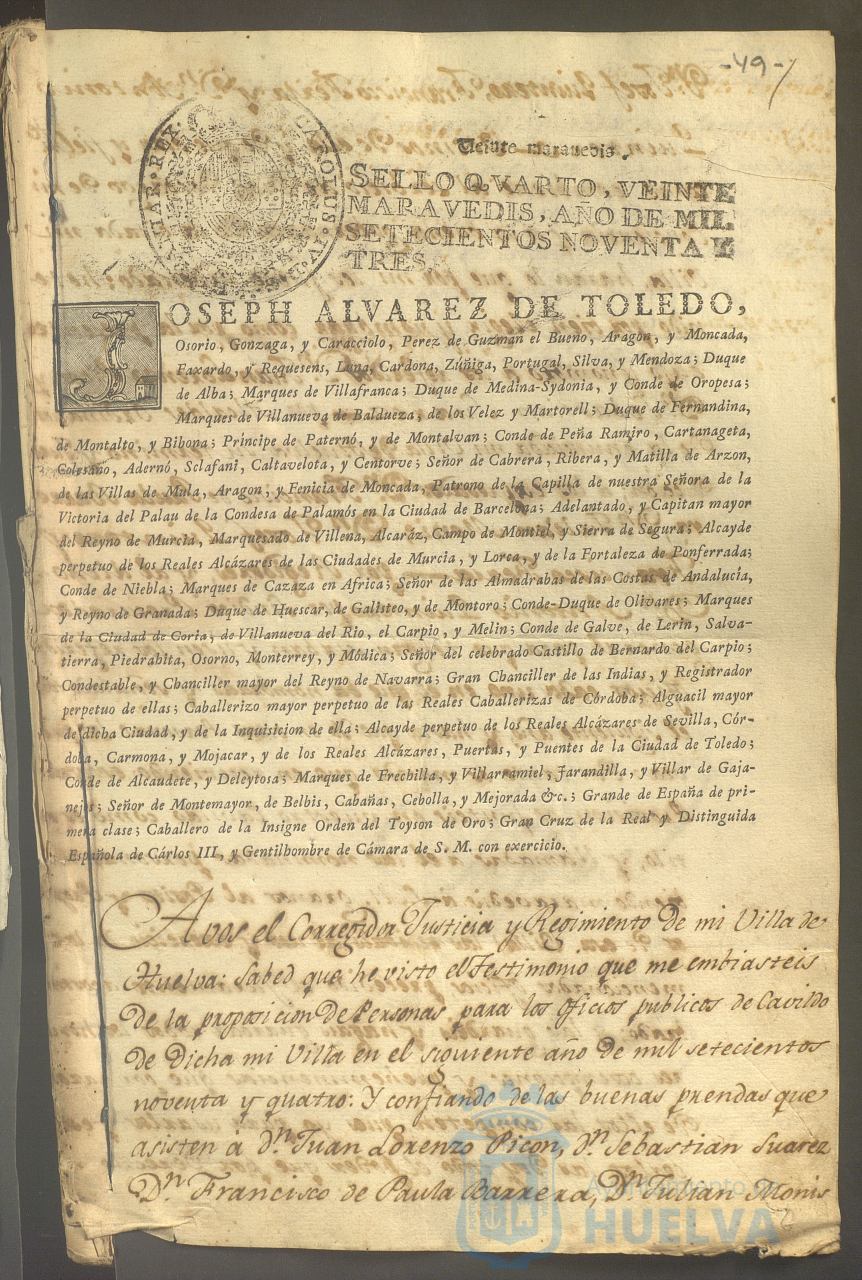 -49-
CAROLUS IV
REX
Veinte maravedis.
SELLO QVARTO, VEINTE
MARAVEDIS, AÑO DE MIL
SETECIENTOS NOVENTA Y
TRES.
JOSEPH ALVAREZ DE TOLEDO,
Osorio, Gonzaga, y Caracciolo, Perez de Guzmán el Bueno, Aragon, y Moncada,
Faxardo, y Requesens, Luna, Cardona, Zúñiga, Portugal, Silva, y Mendoza; Duque
de Alba; Marques de Villafranca; Duque de Medina-Sydonia, y Conde de Oropesa;
Marques de Villanueva de Baldueza, de los Velez y Martorell; Duque de Fernandina,
de Montalto, y Bibona; Principe de Paternó, y de Montalvan; Conde de Peña Ramiro, Cartanageta,
Golesano, Adernó, Sclafani, Caltavelota, y Centorve; Señor de Cabrera, Ribera, y Matilla de Arzon,
de las Villas de Mula, Aragon, y Fenicia de Moncada, Patrono de la Capilla de nuestra Señora de la
Victoria del Palau de la Condesa de Palamós en la Ciudad de Barcelona; Adelantado, y Capitan mayor
del Reyno de Murcia, Marquesado de Villena, Alcaráz, Campo de Montiel, y Sierra de Segura; Alcayde
perpetuo de los Reales Alcázares de las Ciudades de Murcia, y Lorca, y de la Fortaleza de Ponferrada;
Conde de Niebla; Marques de Cazaza en Africa; Señor de las Almadrabas de las Costas de Andalucía,
y Reyno de Granada; Duque de Huescar, de Galisteo, y de Montoro; Conde-Duque de Olivares; Marques
de la Ciudad de Coria, de Villanueva del Rio, el Carpio, y Melin; Conde de Galve, de Lerin, Salva-
tierra, Piedrahita, Osorno, Monterrey, y Módica; Señor del celebrado Castillo de Bernardo del Carpio;
Condestable, y Chanciller mayor del Reyno de Navarra; Gran Chanciller de las Indias, y Registrador
perpetuo de ellas; Caballerizo mayor perpetuo de las Reales Caballerizas de Córdoba; Alguacil mayor
de dicha Ciudad, y de la Inquisicion de ella; Alcayde perpetuo de los Reales Alcázares de Sevilla, Cór-
doba, Carmona, y Mojacar, y de los Reales Alcázares, Puertas, y Puentes de la Ciudad de Toledo;
Conde de Alcaudete, y Deleytosa; Marques de Frechilla, y Villarramiel, Jarandilla, y Villar de Gaja-
nejos; Señor de Montemayor, de Belbis, Cabañas, Cebolla, y Mejorada &c.; Grande de España de pri-
mera clase; Caballero de la Insigne Orden del Toyson de Oro; Gran Cruz de la Real y Distinguida
Española de Cárlos III, y Gentilhombre de Cámara de S. M. con exercicio.
A vos el Corregidor Justicia y Regimiento de mi Villa de
Huelva: Sabed que he visto el Testimonio que me embiasteis
de la proposicion de Personas para los oficios publicos de Cavildo
de dicha mi Villa en el siguiente año de mil setecientos
noventa y quatro: Y confiando de las buenas prendas que
asisten á Dn. Juan Lorenzo Picon, Dn. Sebastian Suarez
Dn. Francisco de Paula Barrera, Dn. Julian Monis
Ayuntamiento de
HUELVA